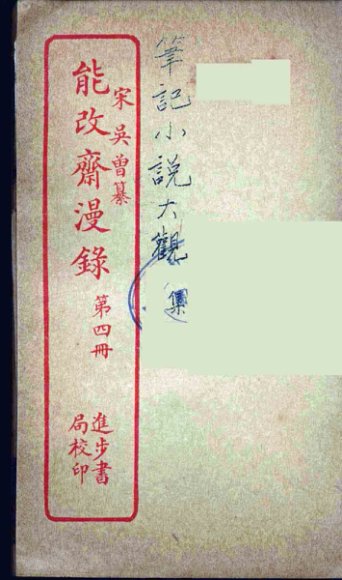 筆記小説大觀
宋吳曾纂
能改齋漫錄
第四冊
進步書
局校印